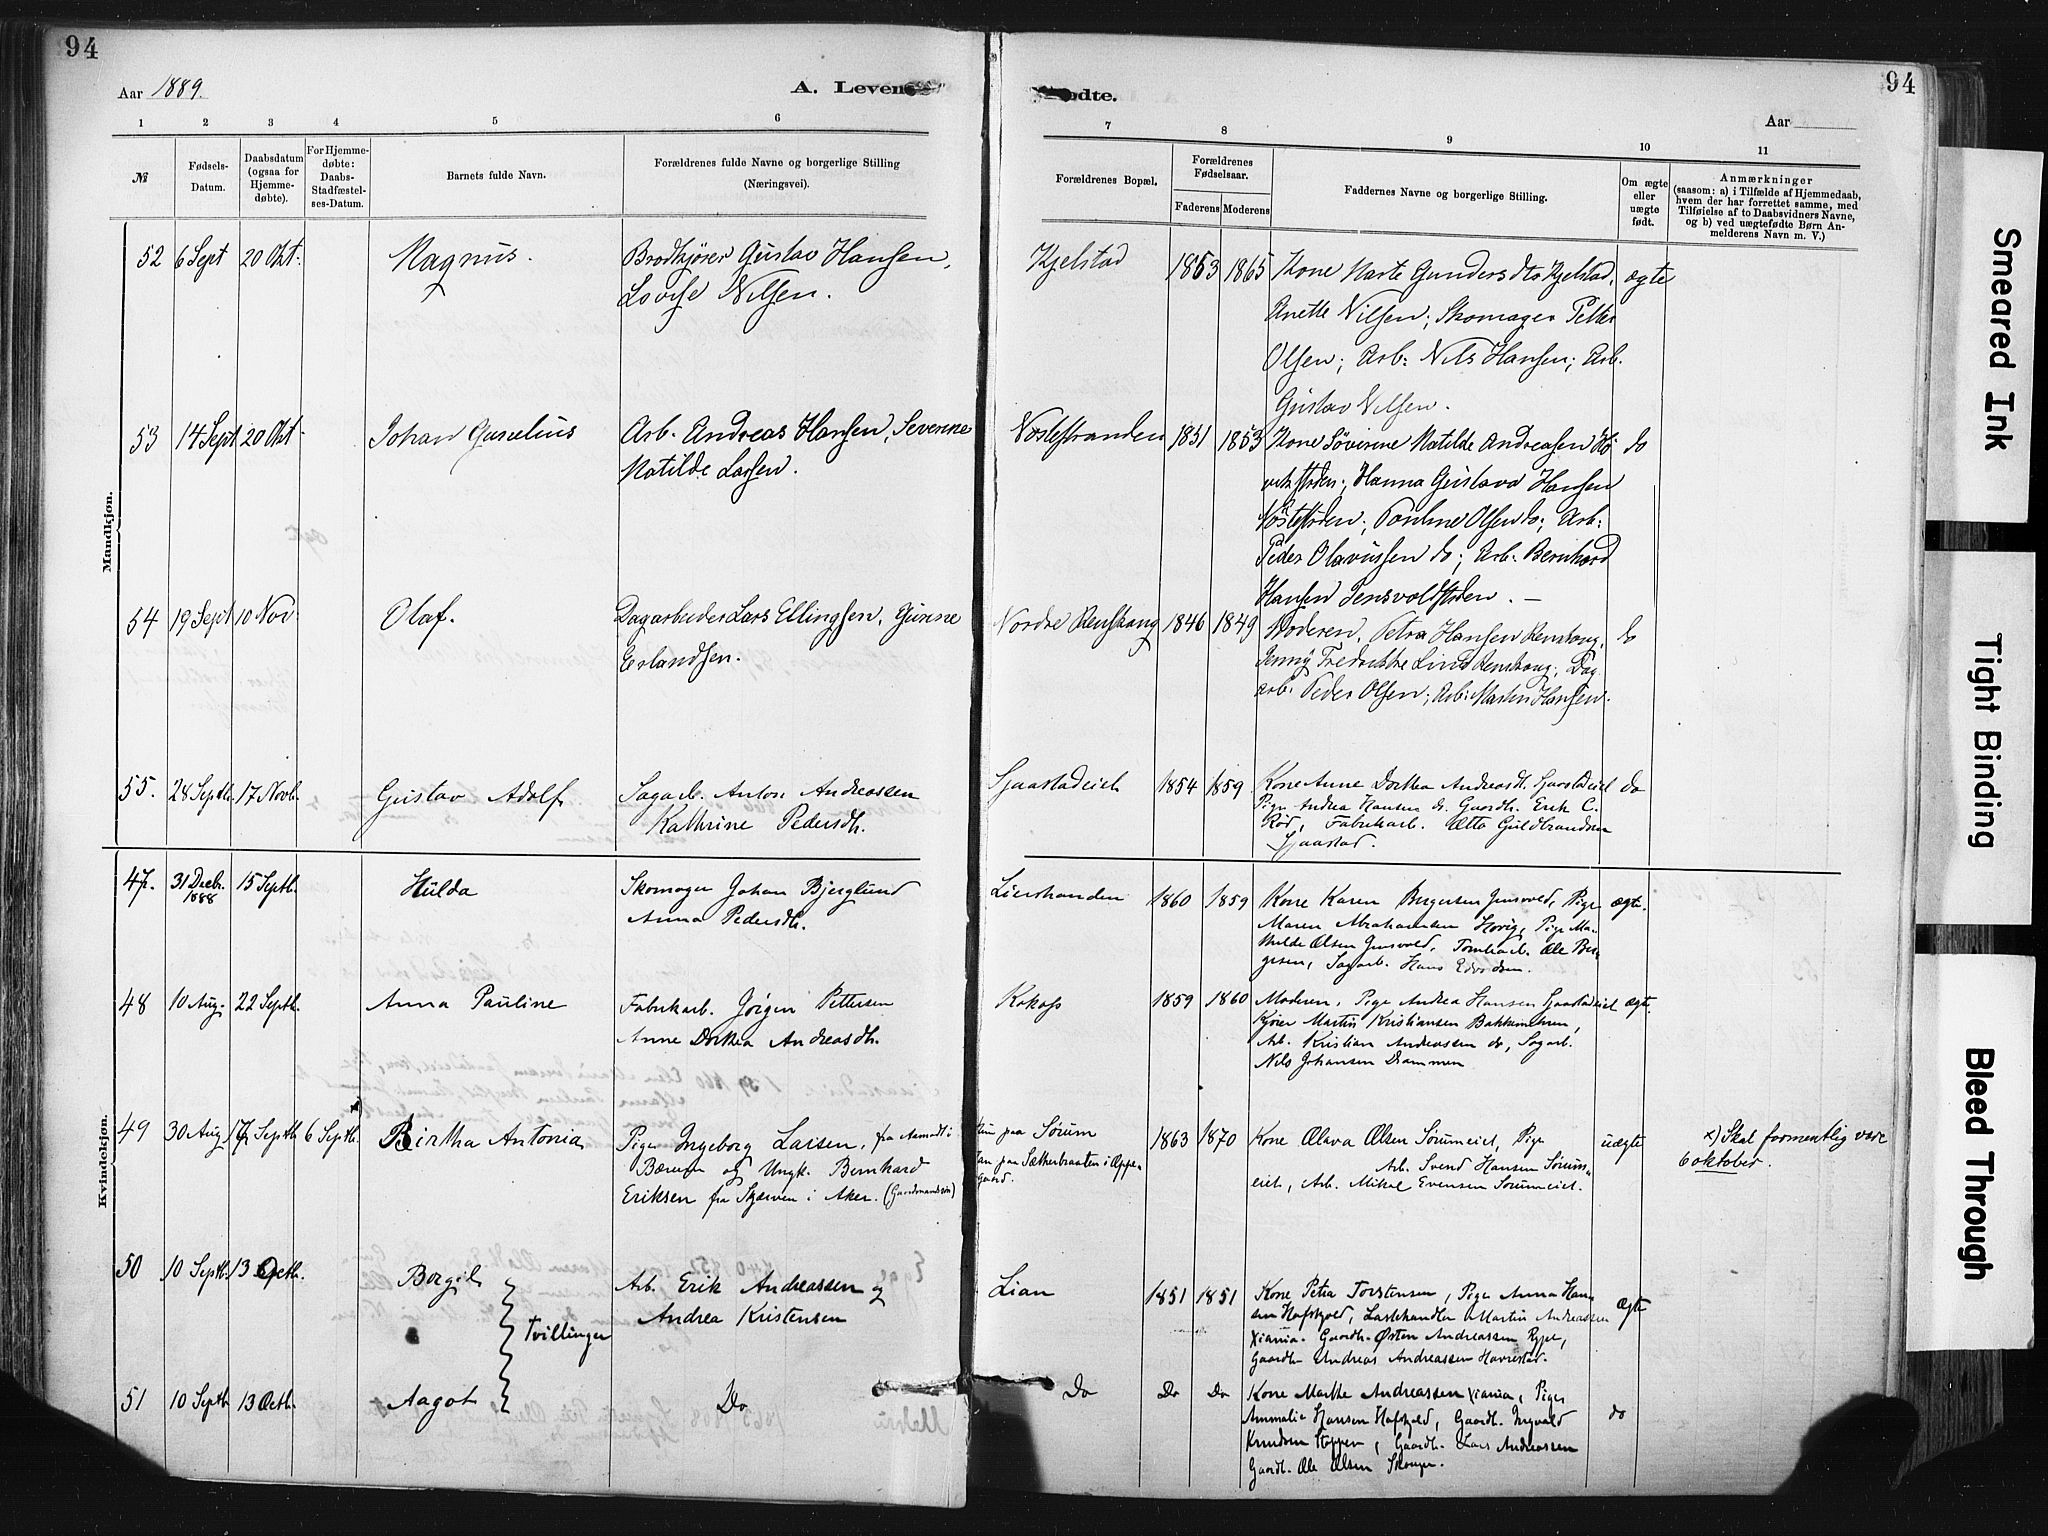 94
Aar 1889.
A. Levende
1 2 3 4 5 6
№
Fødsels-
Datum.
Daabsdatum
(ogsaa for
Hjemme-
døbte).
For Hjemme-
døbte:
Daabs-
Stadfæstel-
ses-Datum.
Barnets fulde Navn.
Forældrenes fulde Navne og borgerlige Stilling
(Næringsvei).
Mandkjøn.
52 6 Sept 20 Okt. Magnus. Brødkjører Gustav Hansen,
Lovise Nilsen.
53 14 Sept 20 Okt. Johan Arb. Andreas Hansen, Severine
Matilde Larsen.
54 19 Sept 10 Nov. Olaf. Dagarbeider Lars Ellingsen, Gurine
Erlandsen.
55. 28 Septb. 17 Novb. Gustav Adolf Sagarb. Anton Andreassen
Kathrine Pedersdh.
Kvindekjøn.
47. 31 Decb. 1888 15 Septb. Hulda Skomager Johan Bjerglund
Anna Pedersdh.
48 10 Aug. 22 Septb. Anna Pauline Fabrikarb. Jørgen Pettersen
Anne Dorthea Andreasdh.
49 30 Aug. 17 Septb 6 Septb. x Birtha Antonia Pige Ingeborg Larsen, fra i
Bærum og Ungk. Bernhard
Eriksen fra Skjerven i Aker. (Gaardmandssøn)
50 10 Septb. 13 Octb. Borgil Arb. Erik Andreassen og
Andrea Kristensen
Tvillinger
51 10 Septb 13 Octb. Aagot Do
94
fødte.
Aar
7 8 9 10 11
Forældrenes Bopæl.
Forældrenes
Fødselsaar.
Faderens Moderens
Faddernes Navne og borgerlige Stilling.
Om ægte
eller
uægte
født.
Anmærkninger
(saasom: a) i Tilfælde af Hjemmedaab,
hvem der har forrettet samme, med
Tilføielse af to Daabsvidners Navne,
og b) ved uægtefødte Børn An-
melderens Navn m. V.)
Kjelstad 1863 1865 Kone Marte Gundersdtr Kjelstad, ægte
Anette Nilsen; Skomager Petter
Olsen; Arb. Nils Hansen; Arb.
Gustav Nilsen.
Nøstestranden 1851 1853 Kone Søverine Matilde Andreasen do
Hanna Gustava Hansen
Pauline Olsen do; Arb.
Peder Olavussen do; Arb. Bernhard
Hansen
Nordre Renskaug 1846 1849 Moderen, Petra Hansen Renskaug, do
Jenny Fredrikke Lind Renskaug; Dag
arb. Peder Olsen; Arb. Martin Hansen.
Gjaastadeiet 1854 1859 Kone Anne Dorthea Andreasdh. Gjaastadeiet do
Pige Andrea Hansen do. Gaardb. Erik C.
Rød, Fabrikarb. Otto Guldbrandsen
Gjaastad.
Lierstranden 1860 1859 Kone Karen Bergersen Gensvold, Pige ægte.
Maren Abrahamsen Høvig, Pige Ma-
thilde Olsen Gensvold, Tomtearb. Ole Ber-
gesen, Sagarb. Hans
Kokoss 1859 1860 Moderen, Pige Andrea Hansen Gjaastadeiet ægte.
Kjører Martin Kristiansen
Arb. Kristian Andreassen do, Sagarb.
Nils Johansen Drammen
Hun paa Sørum 1863 1870 Kone Olava Olsen Sørumeiet, Pige uægte x) Skal formentlig være
Han paa Sætherbraaten i Oppe- Arb. Svend Hansen Sørums- 6 oktober.
gaard. eiet, Arb. Mikal Evensen Sørumeiet.
Lian 1851 1851 Kone Petra Torstensen, Pige Anna Han- ægte
sen Hafskjold, Lastehandler Martin Andreassen
Xiania. Gaardb. Østen Andreassen Rype,
Gaardb. Andreas Andreassen Havrestad.
Do Do Do Kone Marthe Andreassen Xiania, Pige do
Ammalie Hansen Hafskjold, Gaardb. Ingvald
Knudsen Stoppen, Gaardb. Lars Andreassen
Gaardb. Ole Olsen Skouger.
Smeared Ink
Tight Binding
Bleed Through